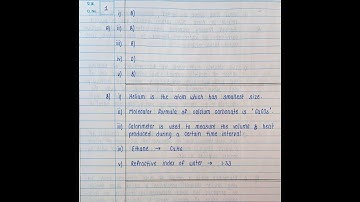 1
i) B)
ii) B)
iii) B)
iv)
v)
B) i) Helium is the atom which has smallest size.
ii) Molecular formula of calcium carbonate is 'CaCO3'.
iii) Calorimeter is used to measure the volume & heat
produced during a certain time interval
iv) Ethane → C2H6
v) Refractive index of water → 1.33